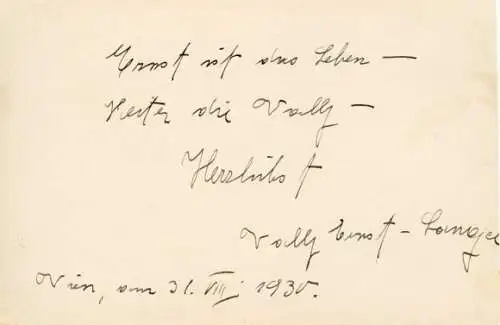 Ernst ist das Leben —
Heiter die Vally —
Herzlichst
Vally Ernst-Langer
Wien, am 31. VIII. 1930.